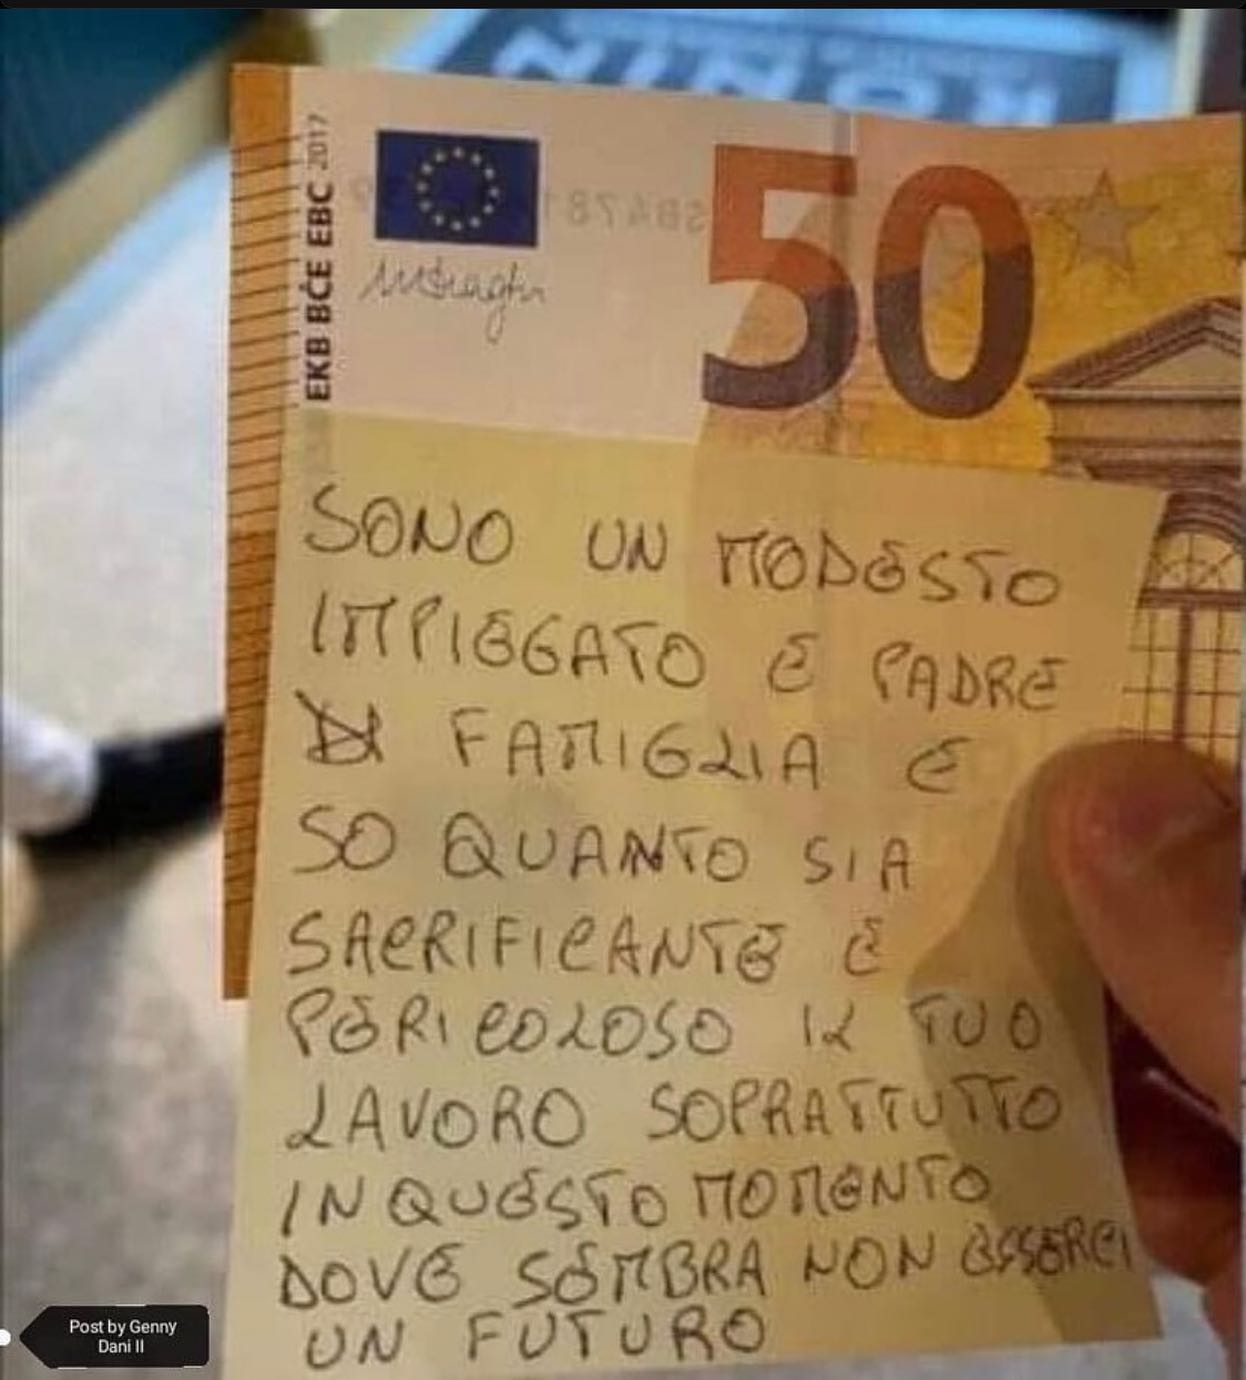 RONIN
EKB BCE EBC 2017
50
SONO UN MODESTO
IMPIEGATO E PADRE
DI FAMIGLIA E
SO QUANTO SIA
SACRIFICANTE E
PERICOLOSO IL TUO
LAVORO SOPRATTUTTO
IN QUESTO MOMENTO
DOVE SEMBRA NON ESSERCI
UN FUTURO
Post by Genny
Dani II